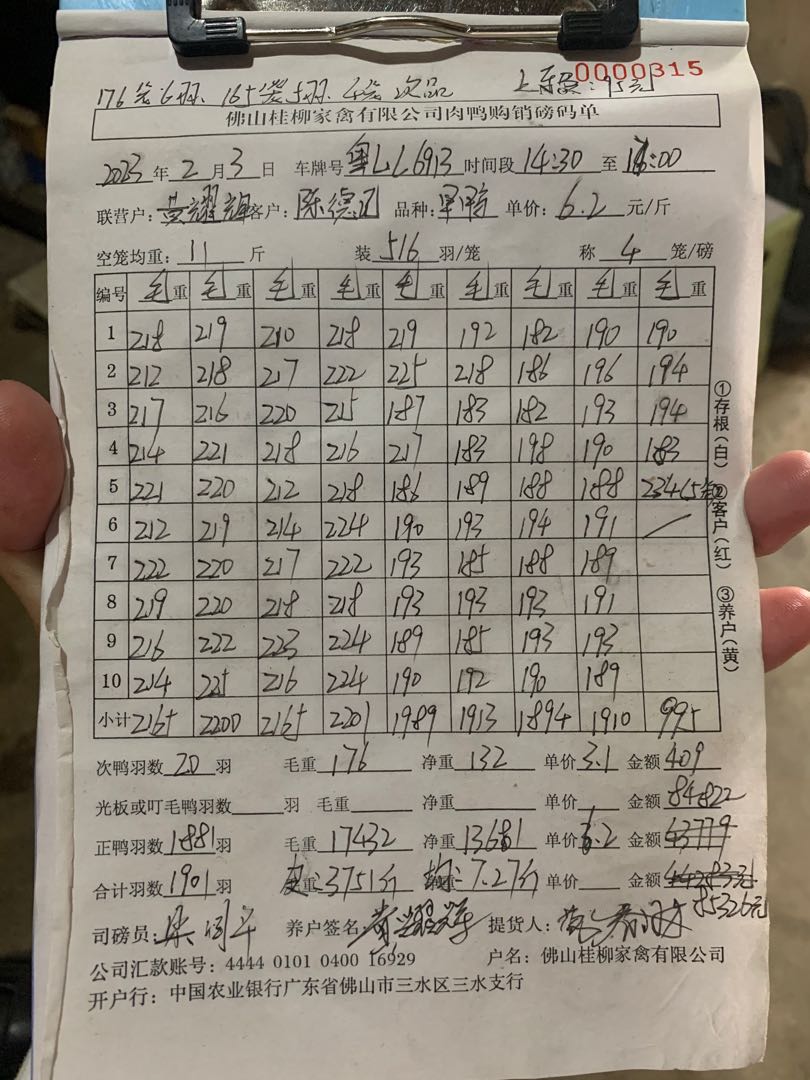 0000315
176笼6羽、165笼5羽、4笼次品 上车费:95元
佛山桂柳家禽有限公司肉鸭购销磅码单
2023年2月3日 车牌号粤LL6913时间段14:30至16:00
联营户:黄耀辉客户:陈德 品种: 单价:6.2元/斤
空笼均重:11斤 装516羽/笼 称4笼/磅
编号 毛重 毛重 毛重 毛重 毛重 毛重 毛重 毛重 毛重
1 218 219 210 218 219 192 182 190 190
2 212 218 217 222 225 218 186 196 194
3 217 216 220 215 187 183 182 193 194
4 214 221 218 216 217 183 198 190 183
5 221 220 212 218 186 189 188 188 234(5笼)
6 212 219 214 224 190 193 194 191
7 222 220 217 222 193 185 188 189
8 219 220 218 218 193 193 193 191
9 216 222 223 224 189 185 193 193
10 214 225 216 224 190 192 190 189
小计 2165 2200 2165 2201 1989 1913 1894 1910 995
次鸭羽数20羽 毛重176 净重132 单价3.1 金额409
光板或叮毛鸭羽数羽 毛重 净重 单价 金额84822
正鸭羽数1881羽 毛重17432 净重13681 单价6.2 金额43779
合计羽数1901羽 皮重:3751斤 均重:7.27斤 单价 金额
85326元
司磅员: 养户签名:黄耀辉 提货人:
公司汇款账号:4444 0101 0400 16929 户名:佛山桂柳家禽有限公司
开户行:中国农业银行广东省佛山市三水区三水支行
①存根(白) ②客户(红) ③养户(黄)